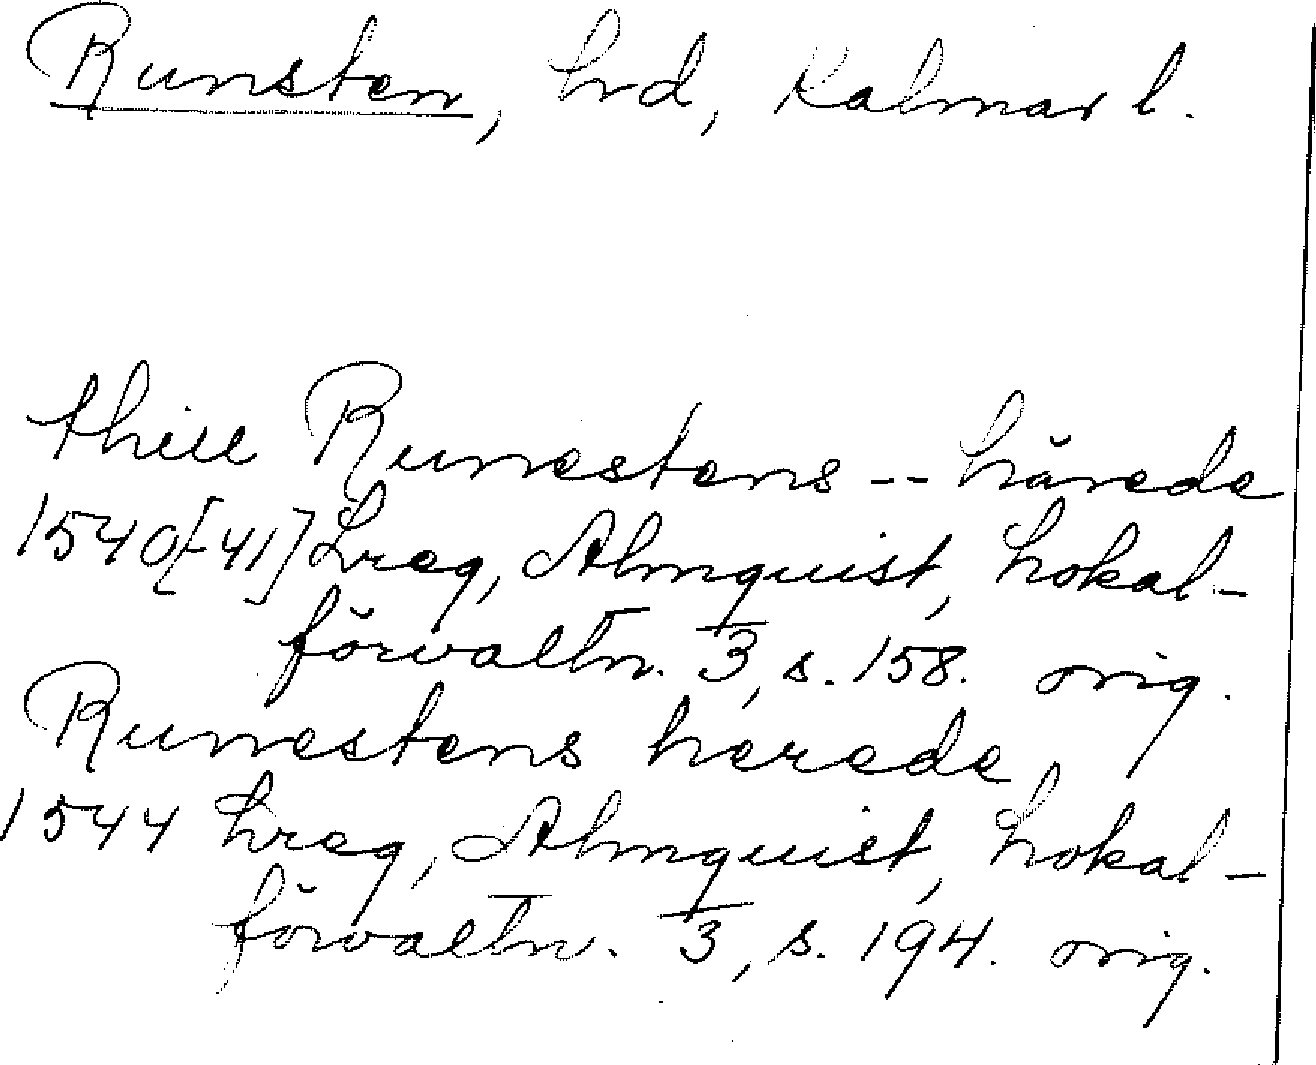 Runsten, hd, Kalmar l.
thill Runestens -- härede
1540[-41] Lreg, Almquist, Lokal-
förvaltn. 3, s. 158. orig.
Runestens herede
1544 Lreg, Almquist, Lokal-
förvaltn. 3, s. 194. orig.